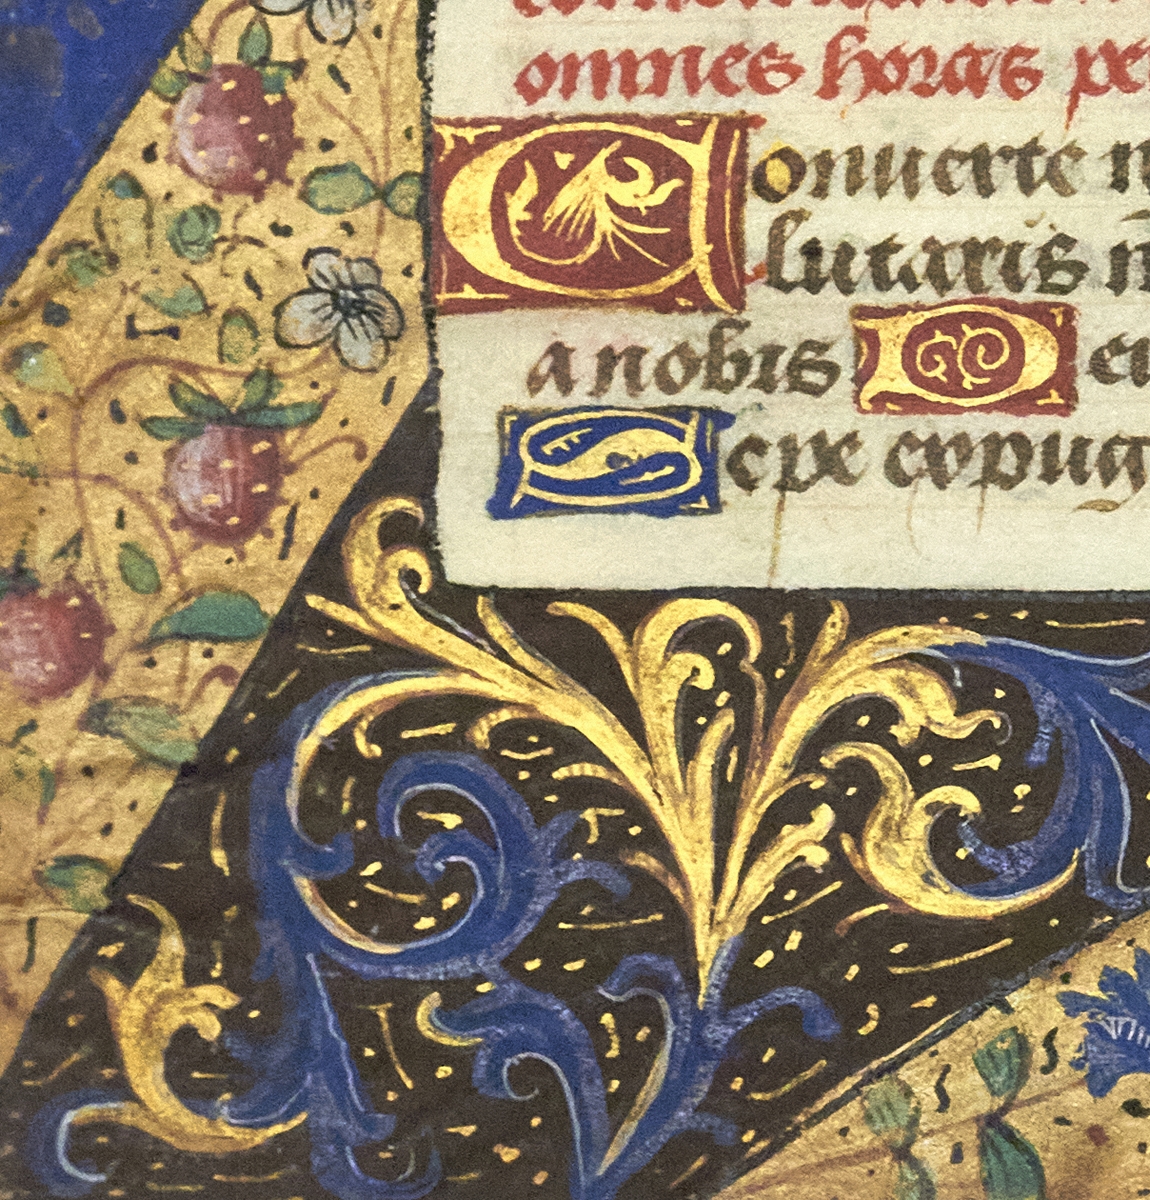 omnes horas pe
Conuerte n
lutaris n
a nobis De
Sepe expug